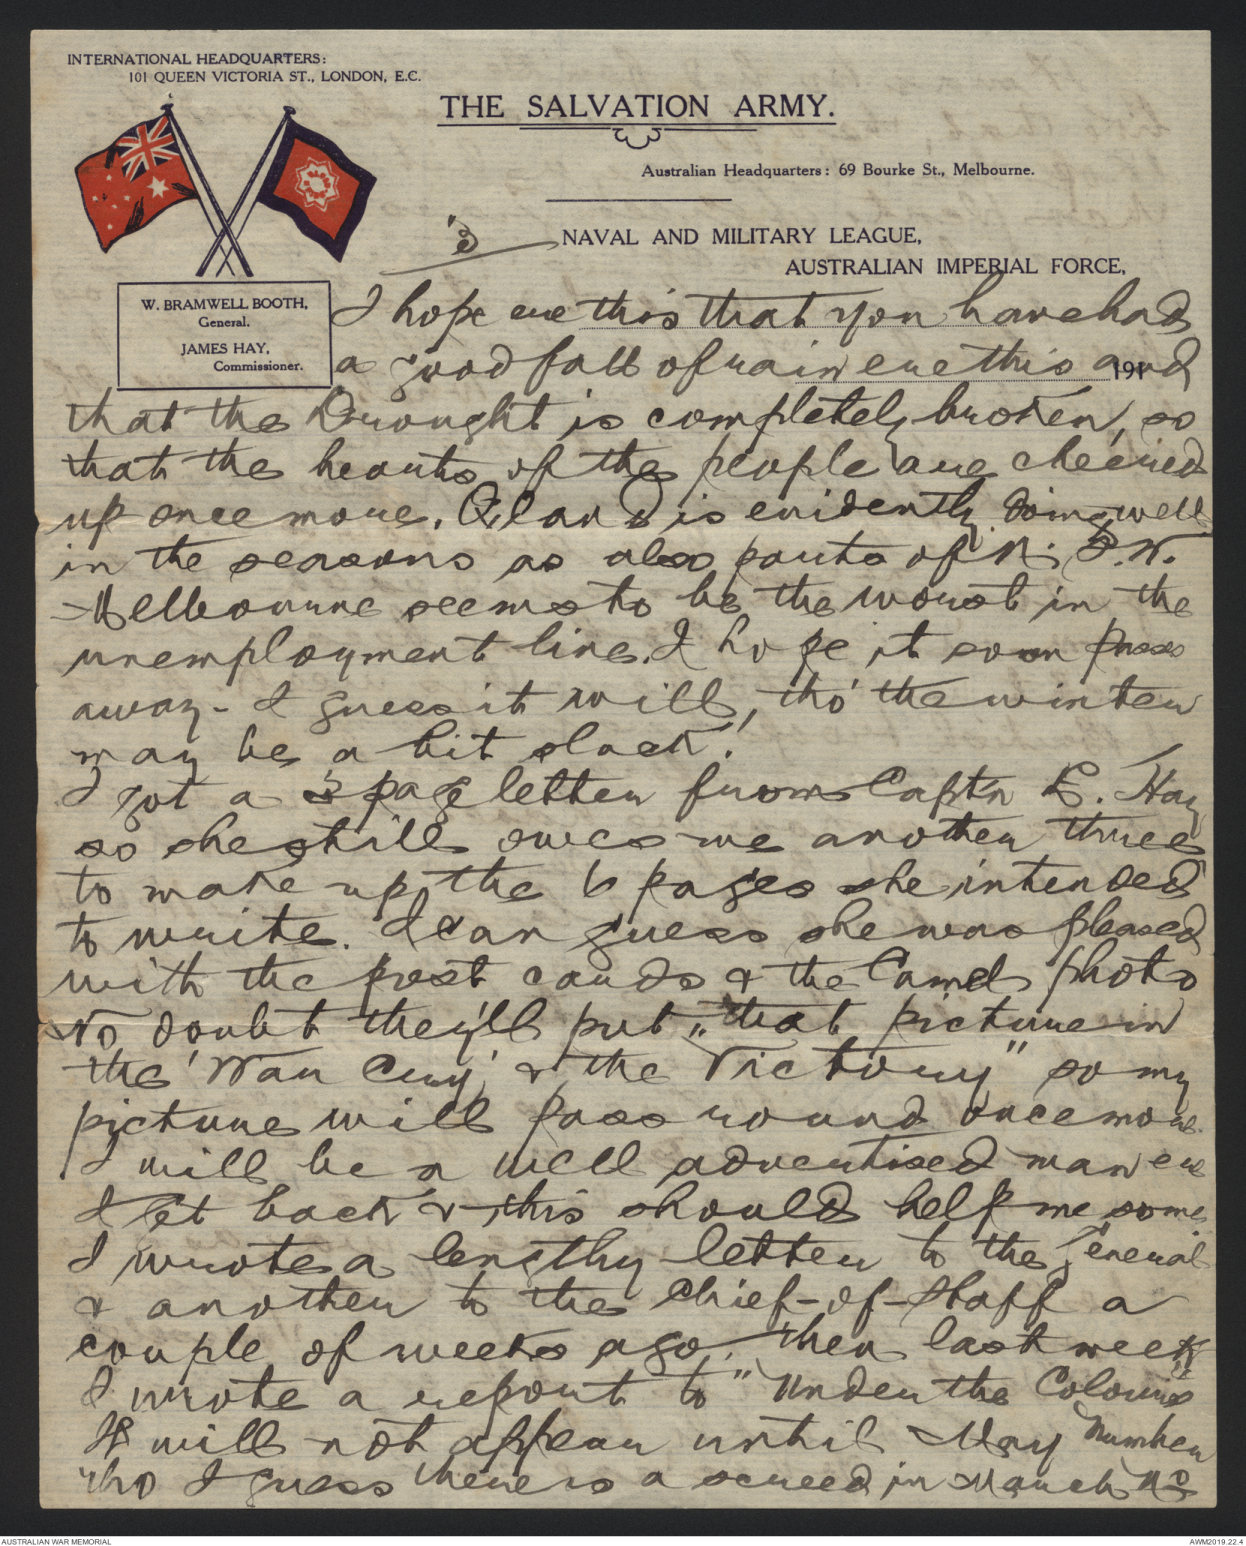 INTERNATIONAL HEADQUARTERS:
101 QUEEN VICTORIA ST., LONDON, E.C.
THE SALVATION ARMY.
Australian Headquarters: 69 Bourke St., Melbourne.
3
NAVAL AND MILITARY LEAGUE,
AUSTRALIAN IMPERIAL FORCE,
W. BRAMWELL BOOTH,
General.
JAMES HAY,
Commissioner.
191
I hope ere this that you have had
a good fall of rain ere this and
that the Drought is completely broken, so
that the hearts of the people are cheered
up once more. Q'land is evidently doing well
in the seasons as also parts of N.S.W.
Melbourne seems to be the worst in the
unemployment line. I hope it soon pass
away - I guess it will, tho' the winter
may be a bit slack!
I got a 3 page letter from Capt'n E. Hay
so she still owes me another three
to make up the 6 pages she intended
to write. I can guess she was pleased
with the post cards & the Camel photo
No doubt they'll put "that picture in
the 'War Cry' & the Victory" so my
picture will pass round once more.
I will be a well advertised man ere
I get back & this should help me some
I wrote a lengthy letter to the General
& another to the Chief-of-Staff a
couple of weeks ago. Then last week
I wrote a report to "Under the Colours"
It will not appear until May Number
tho I guess there is a screed in March No
AUSTRALIAN WAR MEMORIAL
AWM2019.22.4